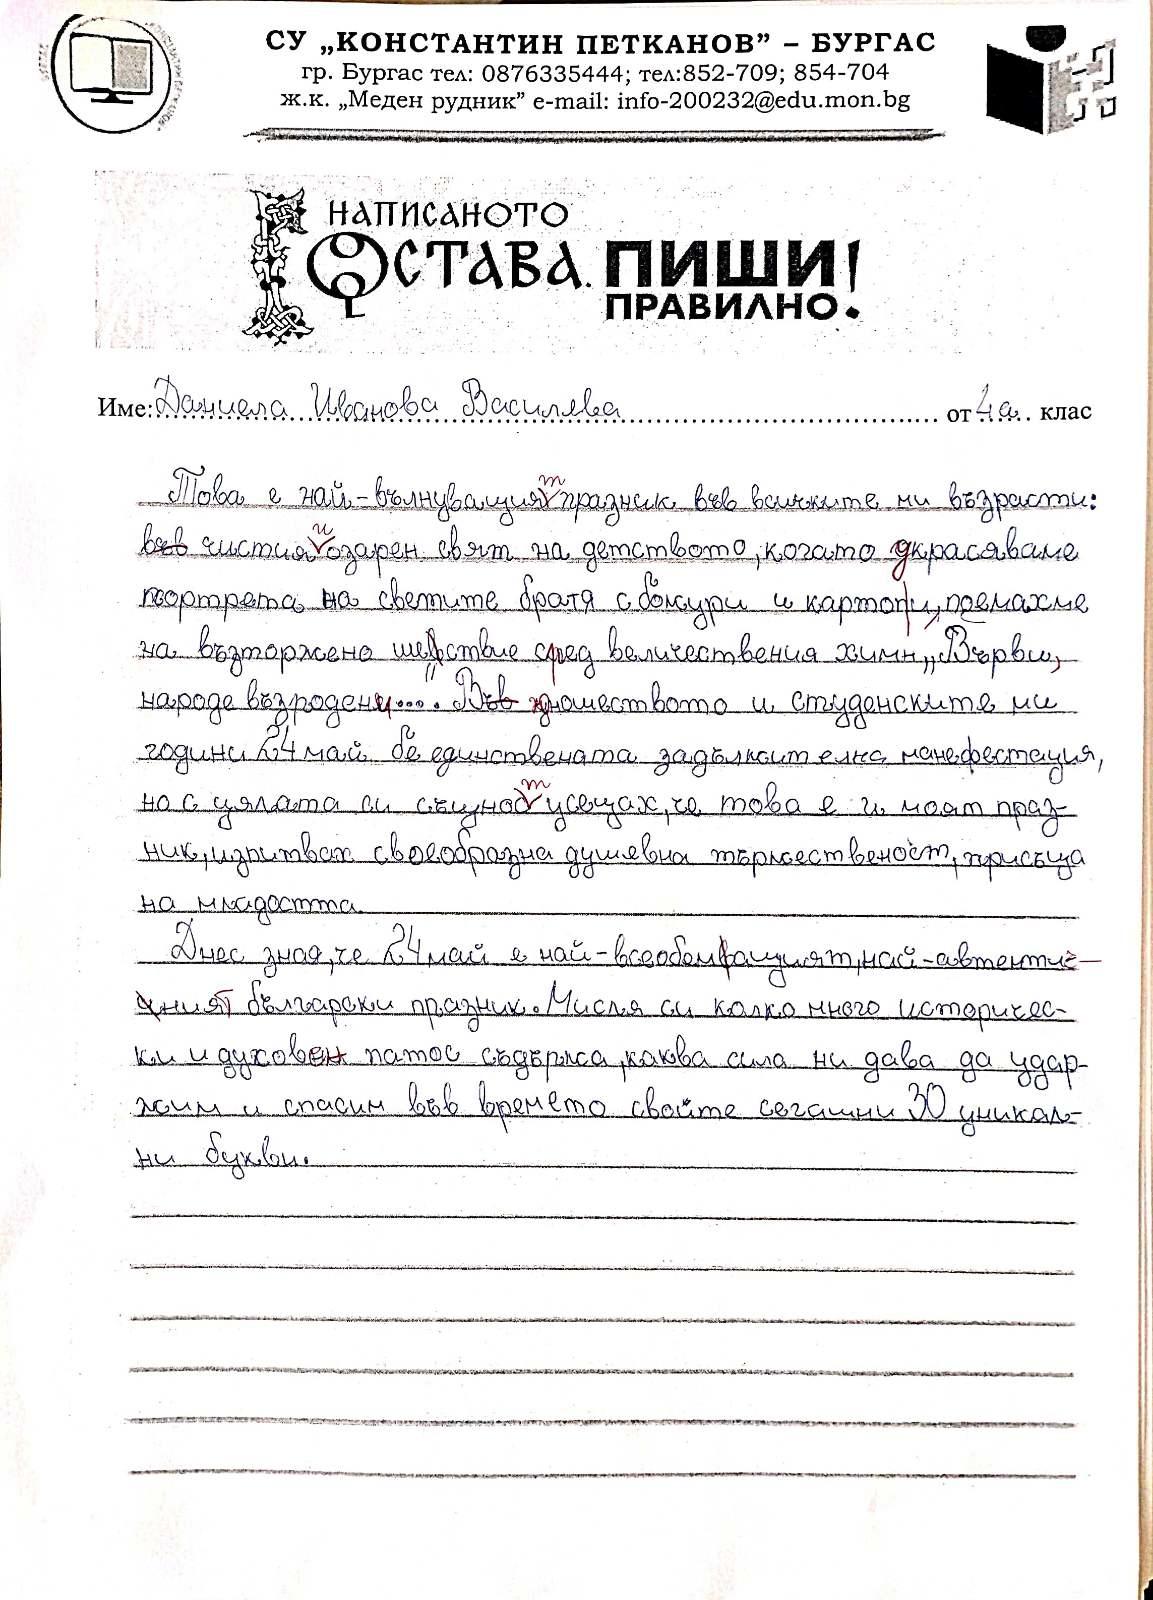 СУ „КОНСТАНТИН ПЕТКАНОВ” – БУРГАС
гр. Бургас тел: 0876335444; тел:852-709; 854-704
ж.к. „Меден рудник” e-mail: info-200232@edu.mon.bg
НАПИСАНОТО
ОСТАВА. ПИШИ
ПРАВИЛНО!
Име: Даниела Иванова Василева от 4а клас
Това е най-вълнуващият празник във всичките ми възрасти:
във чистия и озарен свят на детството, когато украсяваме
портрета на светите братя с божури и картопи, поемахме
на възторжено шествие сред величествения химн „Върви,
народе възродени...". Във юношеството и студенските ми
години 24 май бе единствената задължителна манефестация,
но с цялата си същност усещах, че това е и моят праз-
ник, изпитвах своеобразна душевна тържественост, присъща
на младостта.
Днес зная, че 24 май е най-всеобемващият, най-автентич-
ният български празник. Мисля си колко много историчес-
ки и духовен патос съдържа, каква сила ни дава да удър-
жим и спасим във времето своите сегашни 30 уникал-
ни букви.